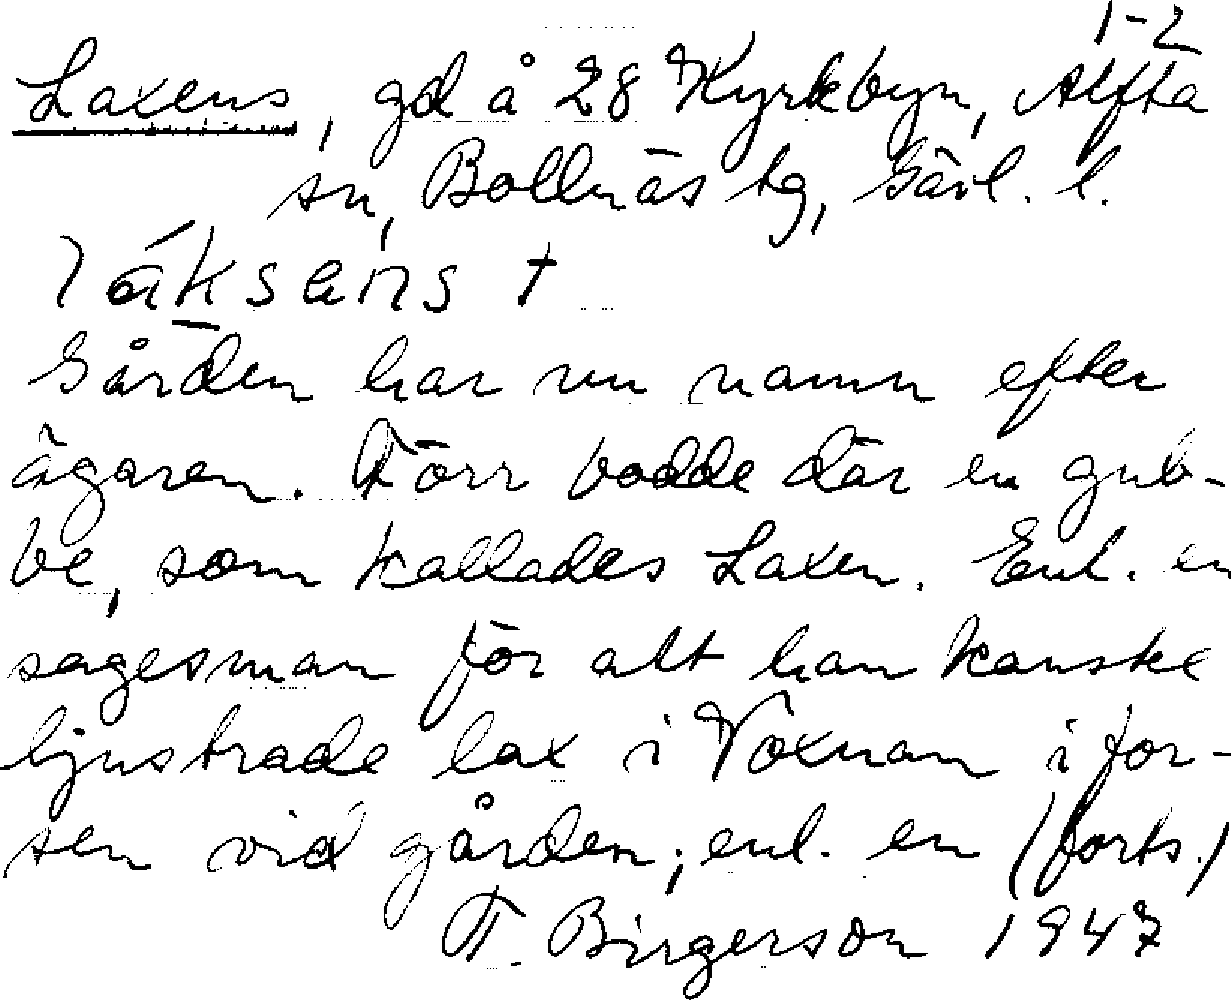 1-2
Laxens, gd å 28 Kyrkbyn, Alfta
sn, Bollnäs tg, Gävl. l.
láksans †
Gården har nu namn efter
ägaren. Förr bodde där en gub-
be, som kallades Laxen. Enl. en
sagesman för att han kanske
ljustrade lax i Voxnan i for-
sen vid gården; enl. en (forts.)
T. Birgerson 1947